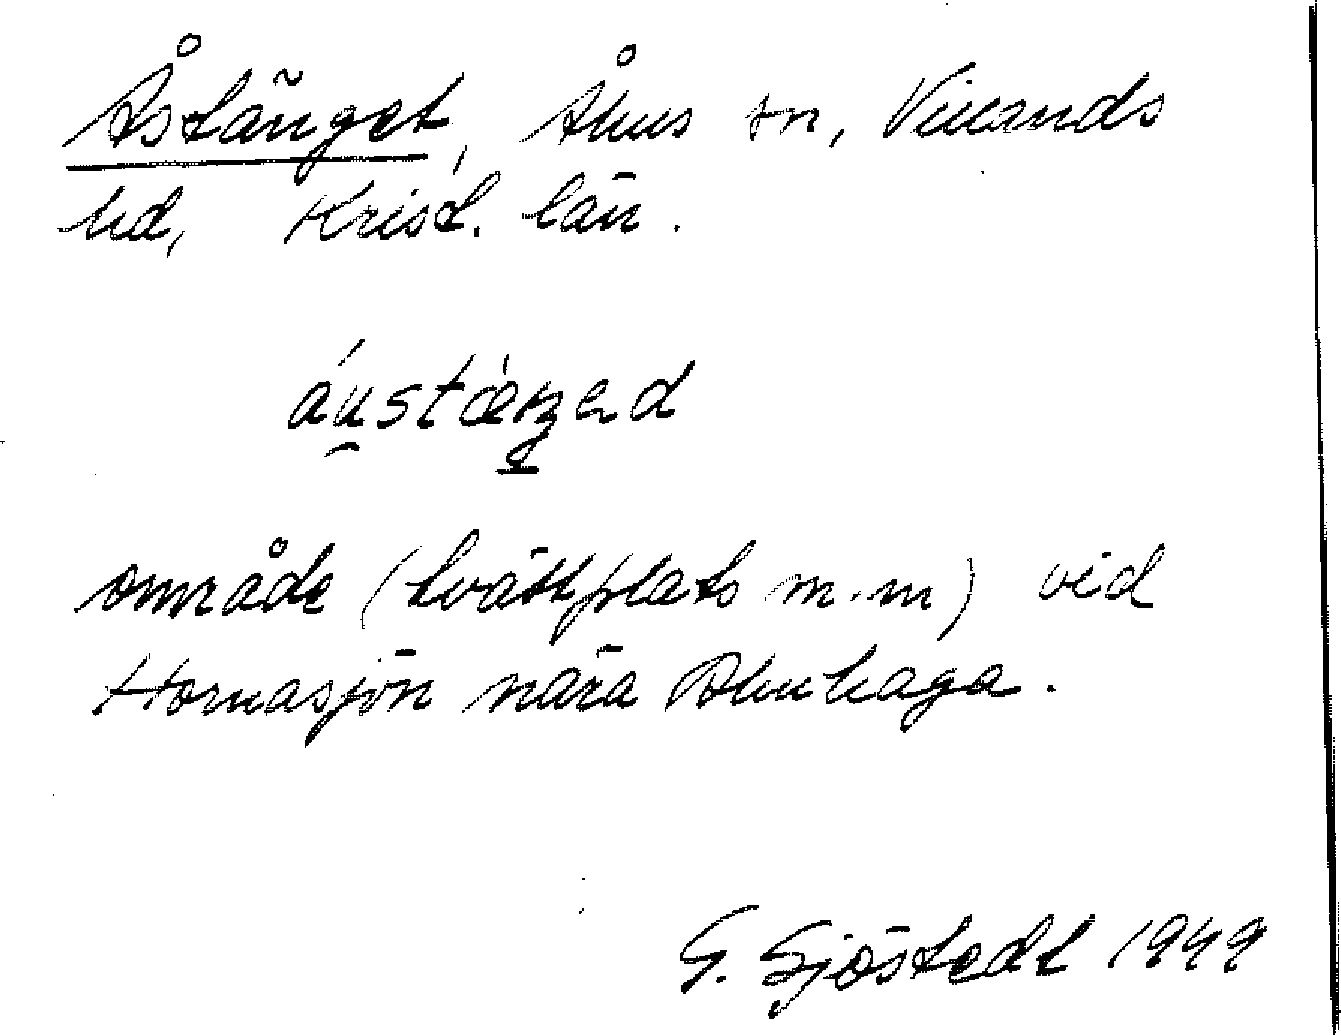 Åstänget, Åhus sn, Villands
hd, Krist. län.
område (tvättplats m.m) vid
Hornasjön nära Ahuhaga.
G. Sjöstedt 1949